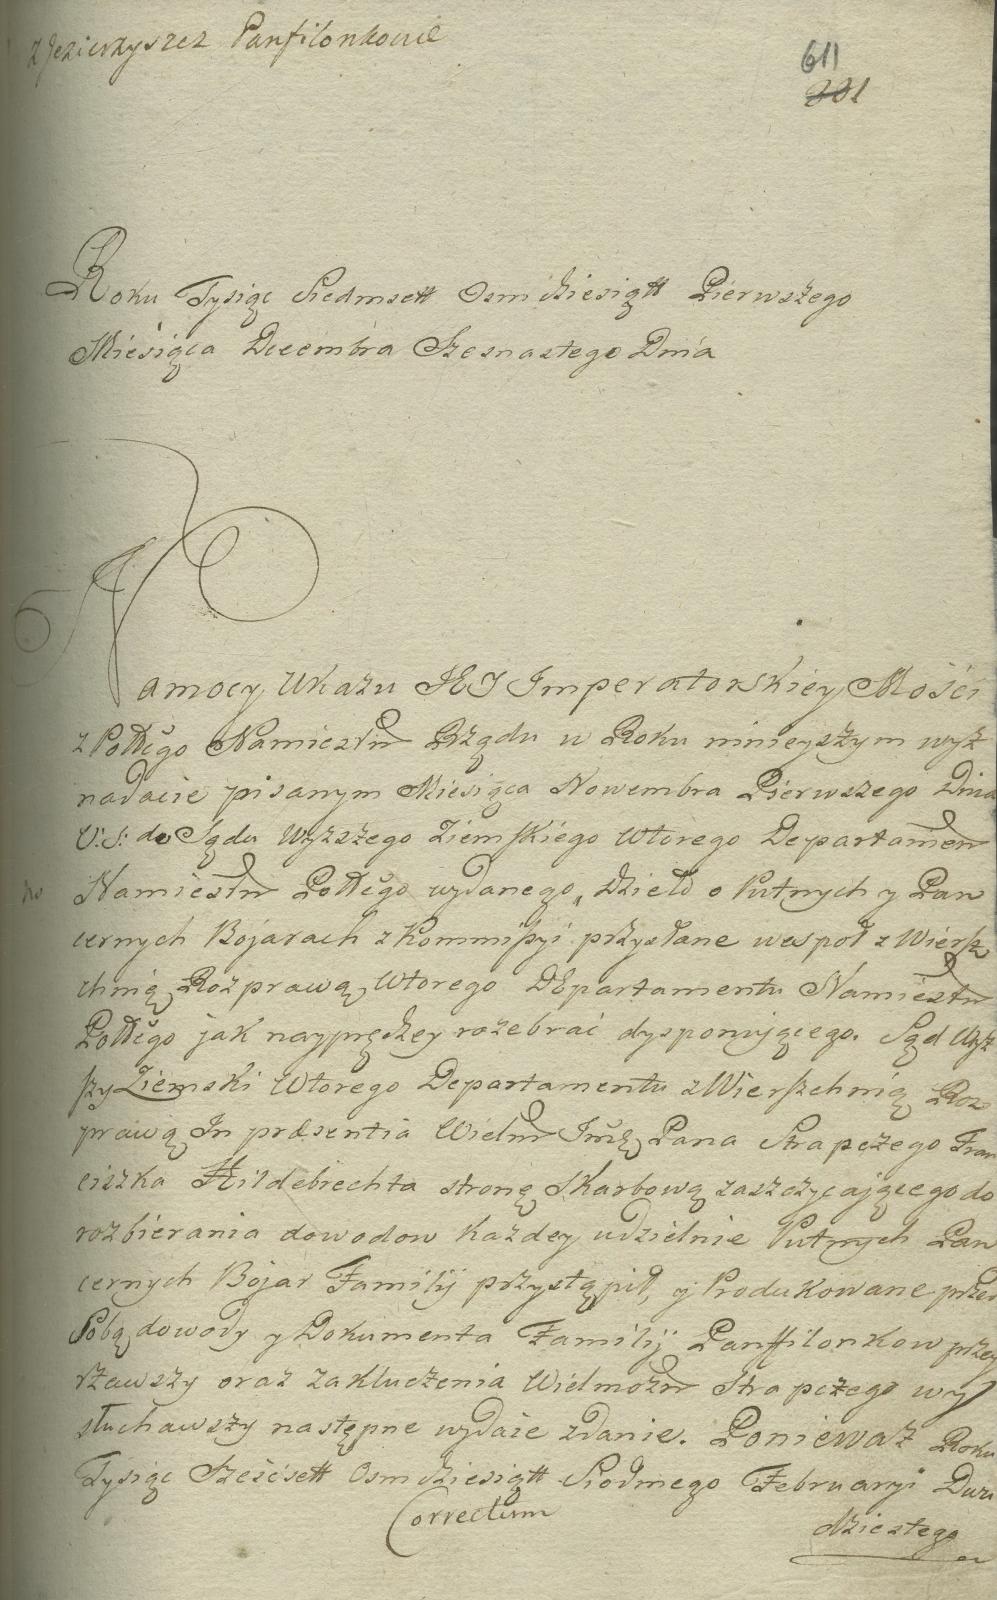 z Jezierzyszcz Panfilonkowie
611
221
Roku Tysiąc Siedmsett Osmdziesiątt Pierwszego
Miesiąca Decembra Szesnastego Dnia
Na mocy Ukazu JEJ Imperatorskiey Mości
z Połłgo Namiestw Rządu w Roku ninieyszym wyż
na dacie pisanym Miesiąca Nowembra Pierwszego Dnia
V: S: do Sądu Wyższego Ziemskiego wtorego Departamen
Namiestw Połłgo wydanego, Dzieło o Putnych y Pan
cernych Bojarach z Kommissyi przysłane wespoł z Wiersz
chnią Rozprawą wtorego DEpartamentu Namiestw
Połłgo jak nayprędzey rozebrać dysponującego. Sąd Wyż
szy Ziemski Wtorego Departamentu z Wierszchnią Roz
prawą In præsentia Wielm Jmę Pana Strapczego Fran
ciszka Hildebrechta stronę Skarbową zaszczycającego do
rozbierania dowodow każdey udzielnie Putnych Pan
cernych Bojar Familij przystąpił, y Produkowane przed
Sobą dowody y Dokumenta Familij Panffilonkow przey
rzawszy oraz zakluczenia Wielmożn Strapczego wy
słuchawszy następne wydaie zdanie. Ponieważ Roku
Tysiąc Sześcsett Osmdziesiątt Siodmego Februaryi Dwu
dziestego
Correctum